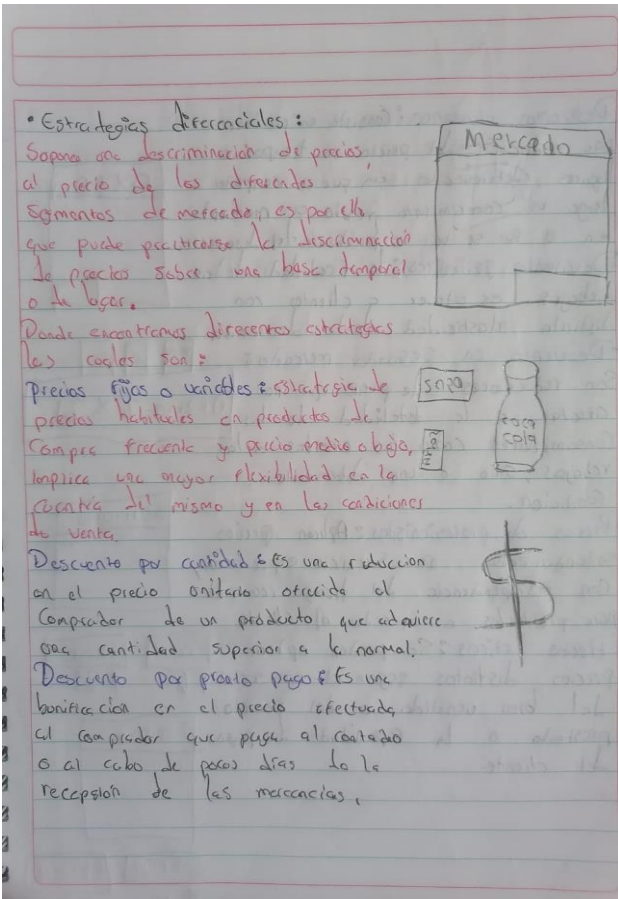 • Estrategias diferenciales:
Mercado
Sopone una descriminacion de precios,
al precio de los diferentes
Segmentos de mercado, es por ello
que puede practicarse la descriminacion
de precios sobre una base temporal
o de lugar.
Donde encontramos diferentes estrategias
las cuales son:
Precios fijos o variables: estrategia de
precios habituales en productos de
Compra frecuente y precio medio o bajo,
Implica una mayor flexibilidad en la
cuantia del mismo y en las condiciones
de venta
coca
cola
Descuento por cantidad: Es una reduccion
en el precio unitario ofrecida al
Comprador de un producto que adquiere
una cantidad superior a la normal.
Descuento por pronto pago: Es una
bonificacion en el precio efectuada
al comprador que paga al contado
o al cabo de pocos dias de la
recepsión de las mercancias.
$